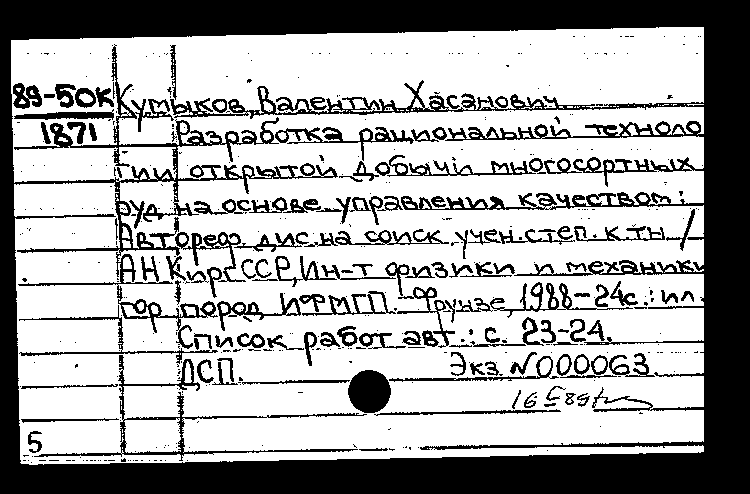 89-50К Кумыков, Валентин Хасанович
1871 Разработка рациональной техноло
гии открытой добычи многосортных
руд на основе управления качеством:
Автореф дис. на соиск учен. степ. к. т н /
АН КиргССР, Ин-т физики и механики
гор пород ИФМГП. - Фрунзе, 1988-24с.: ил.
Список работ авт.: с. 23-24.
ДСП. Экз N000063.
5